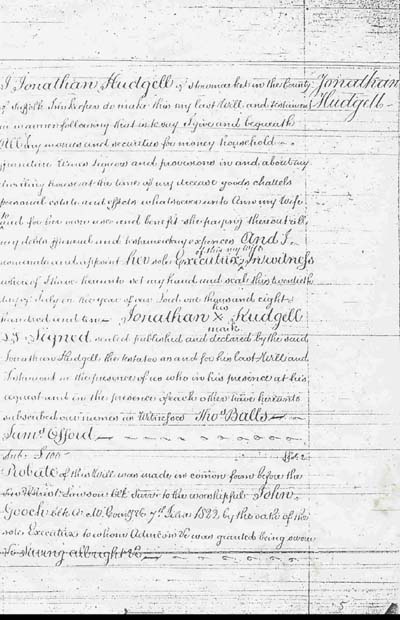 I Jonathan Hudgell of Stowmarket in the County
Jonathan
Hudgell
of Suffolk Innkeeper do make this my last Will and testament
in manner following that is to say I give and bequeath
All my monies and securities for money household
furniture Wines liquors and provisions in and about my
dwelling house at the time of my decease goods chattels
personal estate and effects whatsoever unto Ann my Wife
and for her own use and benefit she paying thereout all
my debts funeral and testamentary expences And I
nominate and appoint her sole Executrix of this my Will In witness
whereof I have hereunto set my hand and seale this twentieth
day of July in the year of our Lord one thousand eight
hundred and ten Jonathan X Hudgell
his
mark
LS Signed sealed published and declared by the said
Jonathan Hudgell the testator as and for his last Will and
Testament in the presence of us who in his presence at his
request and in the presence of each other have hereunto
subscribed our names as Witnesses Thos Balls
Saml Offord
Sub: £ 100
Probate of this Will was made in comon form before the
Lawson Clk Surr to the worshipful John
Gooch Clk 7th 1822 by the oath of the
sole Executrix to whom Admcon &c was granted being sworn
&c Saving all right &c